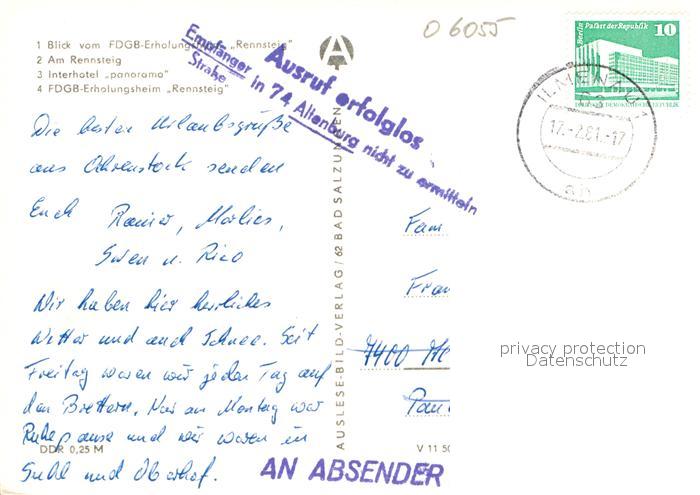 1 Blick vom FDGB-Erholungsheim „Rennsteig"
2 Am Rennsteig
3 Interhotel „panorama"
4 FDGB-Erholungsheim „Rennsteig"
A
O 6055
Berlin Palast der Republik
10
DEUTSCHE DEMOKRATISCHE REPUBLIK
ILMENAU 1
17.-2.81.-17
an
Ausruf erfolglos
Empfänger in 74 Altenburg nicht zu ermitteln
Straße
Die besten Urlaubsgrüße
aus Oehrenstock senden
Euch Rainer, Marlies,
Swen u. Rico
Wir haben hier herrliches
Wetter und auch Schnee. Seit
Freitag waren wir jeden Tag auf
den Brettern. Nur am Montag war
Ruhepause und wir waren in
Suhl und Oberhof.
AUSLESE-BILD-VERLAG/62 BAD SALZUNGEN
Fam
7400
DDR 0,25 M
V 11 50
AN ABSENDER
privacy protection
Datenschutz